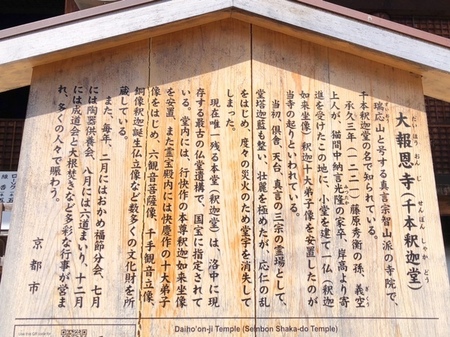 大報恩寺（千本釈迦堂）
だい ほう おん じ せん ぼん しゃ か どう
瑞応山と号する真言宗智山派の寺院で、
千本釈迦堂の名で知られている。
承久三年（一二二一）藤原秀衡の孫、義空
ぎ くう
上人が、猫間中納言光隆の従卒、岸高より寄
進を受けたこの地に、小堂を建て一仏（釈迦
如来像）十大弟子像を安置したのが
当寺の起りといわれている。
当初、倶舎、天台、真言の三宗の霊場として、
堂塔伽藍も整い、壮麗を極めたが、応仁の乱
をはじめ、度々の災火のため堂宇を消失して
しまった。
現在唯一残る本堂（釈迦堂）は、洛中に現
存する最古の仏堂遺構で、国宝に指定されて
いる。堂内には、行快作の本尊釈迦如来坐像
を安置、また霊宝殿内には快慶作の十大弟子
像をはじめ、六観音菩薩像、千手観音立像、
銅像釈迦誕生仏立像など数多くの文化財を所
蔵している。
また、毎年、二月にはおかめ福節分会、七月
には陶器供養会、八月には六道まいり、十二月
には成道会と大根焚きなど多彩な行事が営ま
れ、多くの人々で賑わう。
京都市
Daiho'on-ji Temple (Senbon Shaka-do Temple)